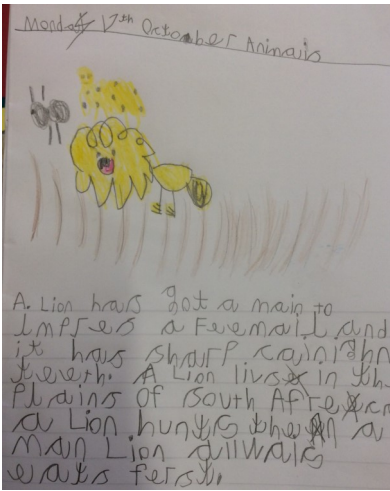 Monday 17th October Animals
A. Lion hars got a main to
Impress a Feemail and
it has sharp cainighn
teeth. A Lion livs in th
Plains of South Afre
a Lion hunts then a
man Lion allwais
eats ferst.